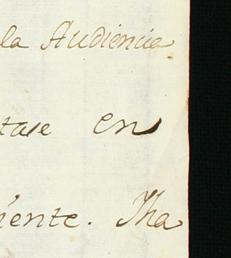 la Audiencia
tase en
iente. Tha